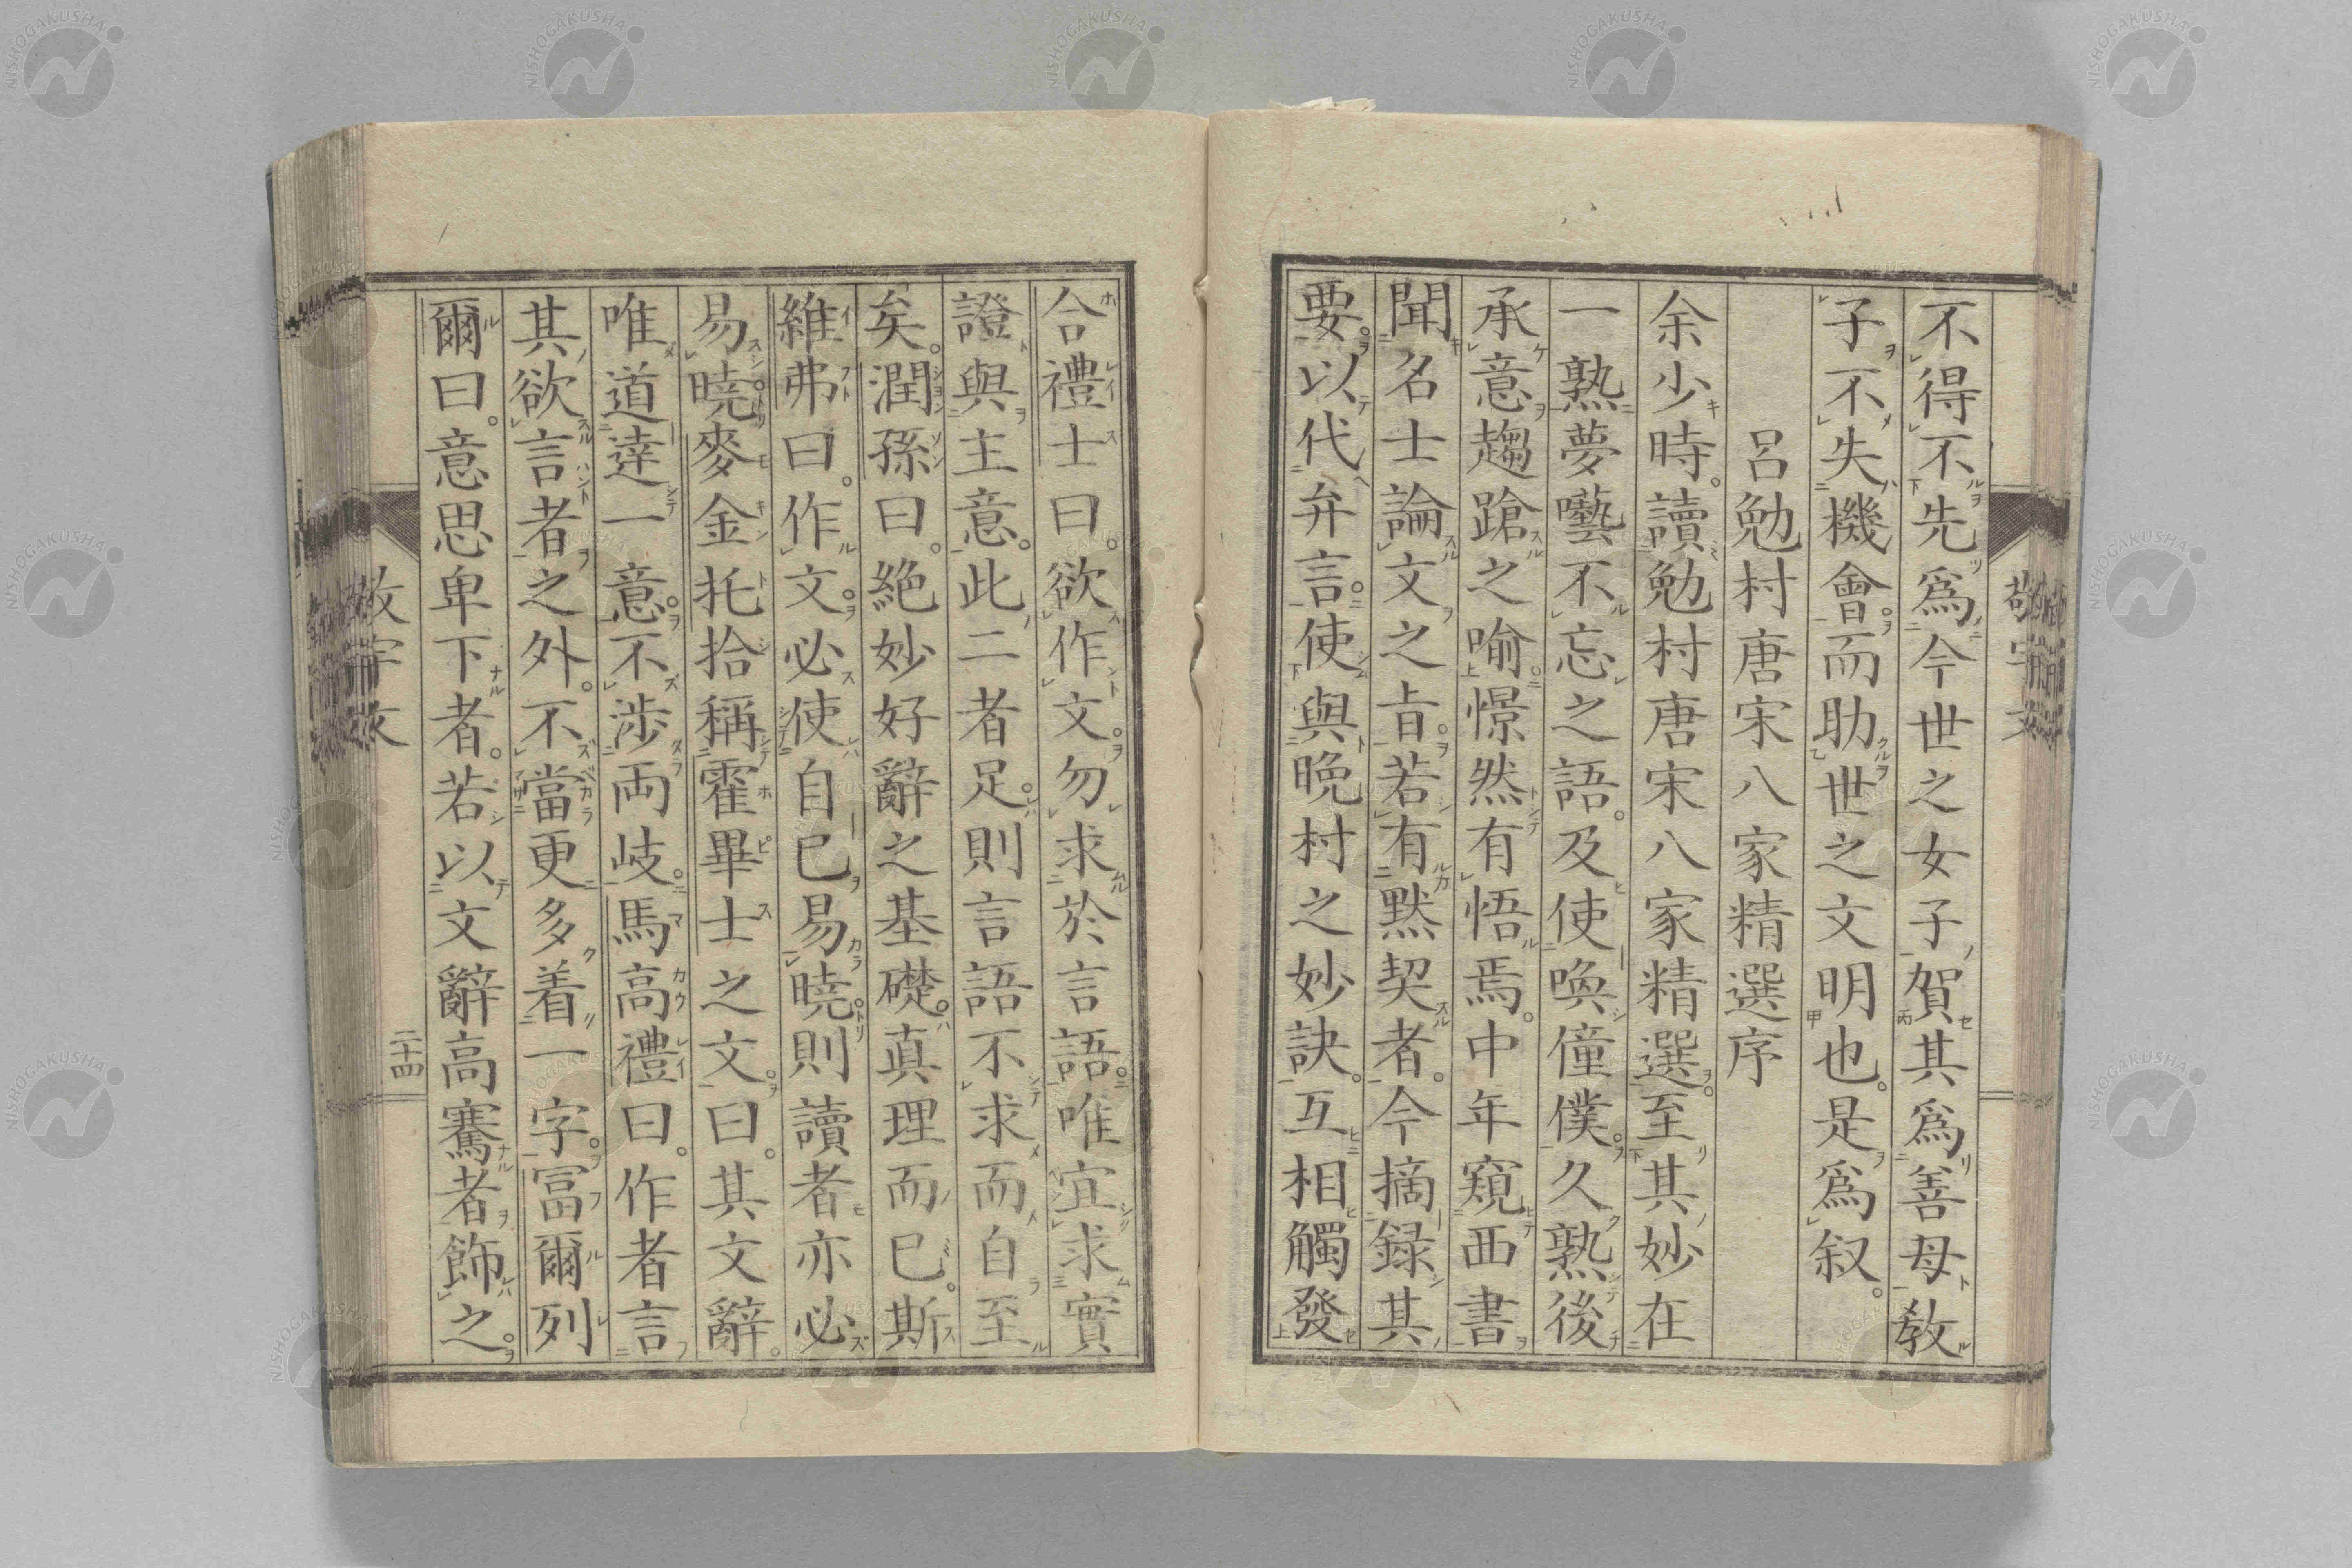 不得不先爲今世之女子賀其爲善母教
子不失機會而助世之文明也。是爲叙。
呂勉村唐宋八家精選序
余少時。讀勉村唐宋八家精選。至其妙在
一熟夢囈不忘之語。及使喚僮僕。久熟後
承意趨蹌之喻。憬然有悟焉。中年窺西書
聞名士論文之旨。若有黙契者。今摘録其
要。以代弁言。使與晩村之妙訣。互相觸發
合禮士曰。欲作文。勿求於言語。唯宜求實
證與主意。此二者足。則言語不求而自至
矣。潤孫曰。絶妙好辭之基礎。真理而已。斯
維弗曰。作文。必使自己易曉。則讀者亦必
易曉。麥金托拾稱霍畢士之文。曰。其文辭。
唯道達一意。不渉両岐。馬高禮曰。作者言
其欲言者之外。不當更多着一字。冨爾列
爾曰。意思卑下者。若以文辭高騫者飾之。
二十四
NISHOGAKUSHA